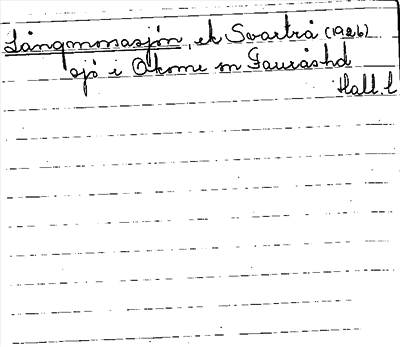 Långmossasjön, el Svarttrå (1926)
sjö i Okome sn Faurås hd
Hall. l